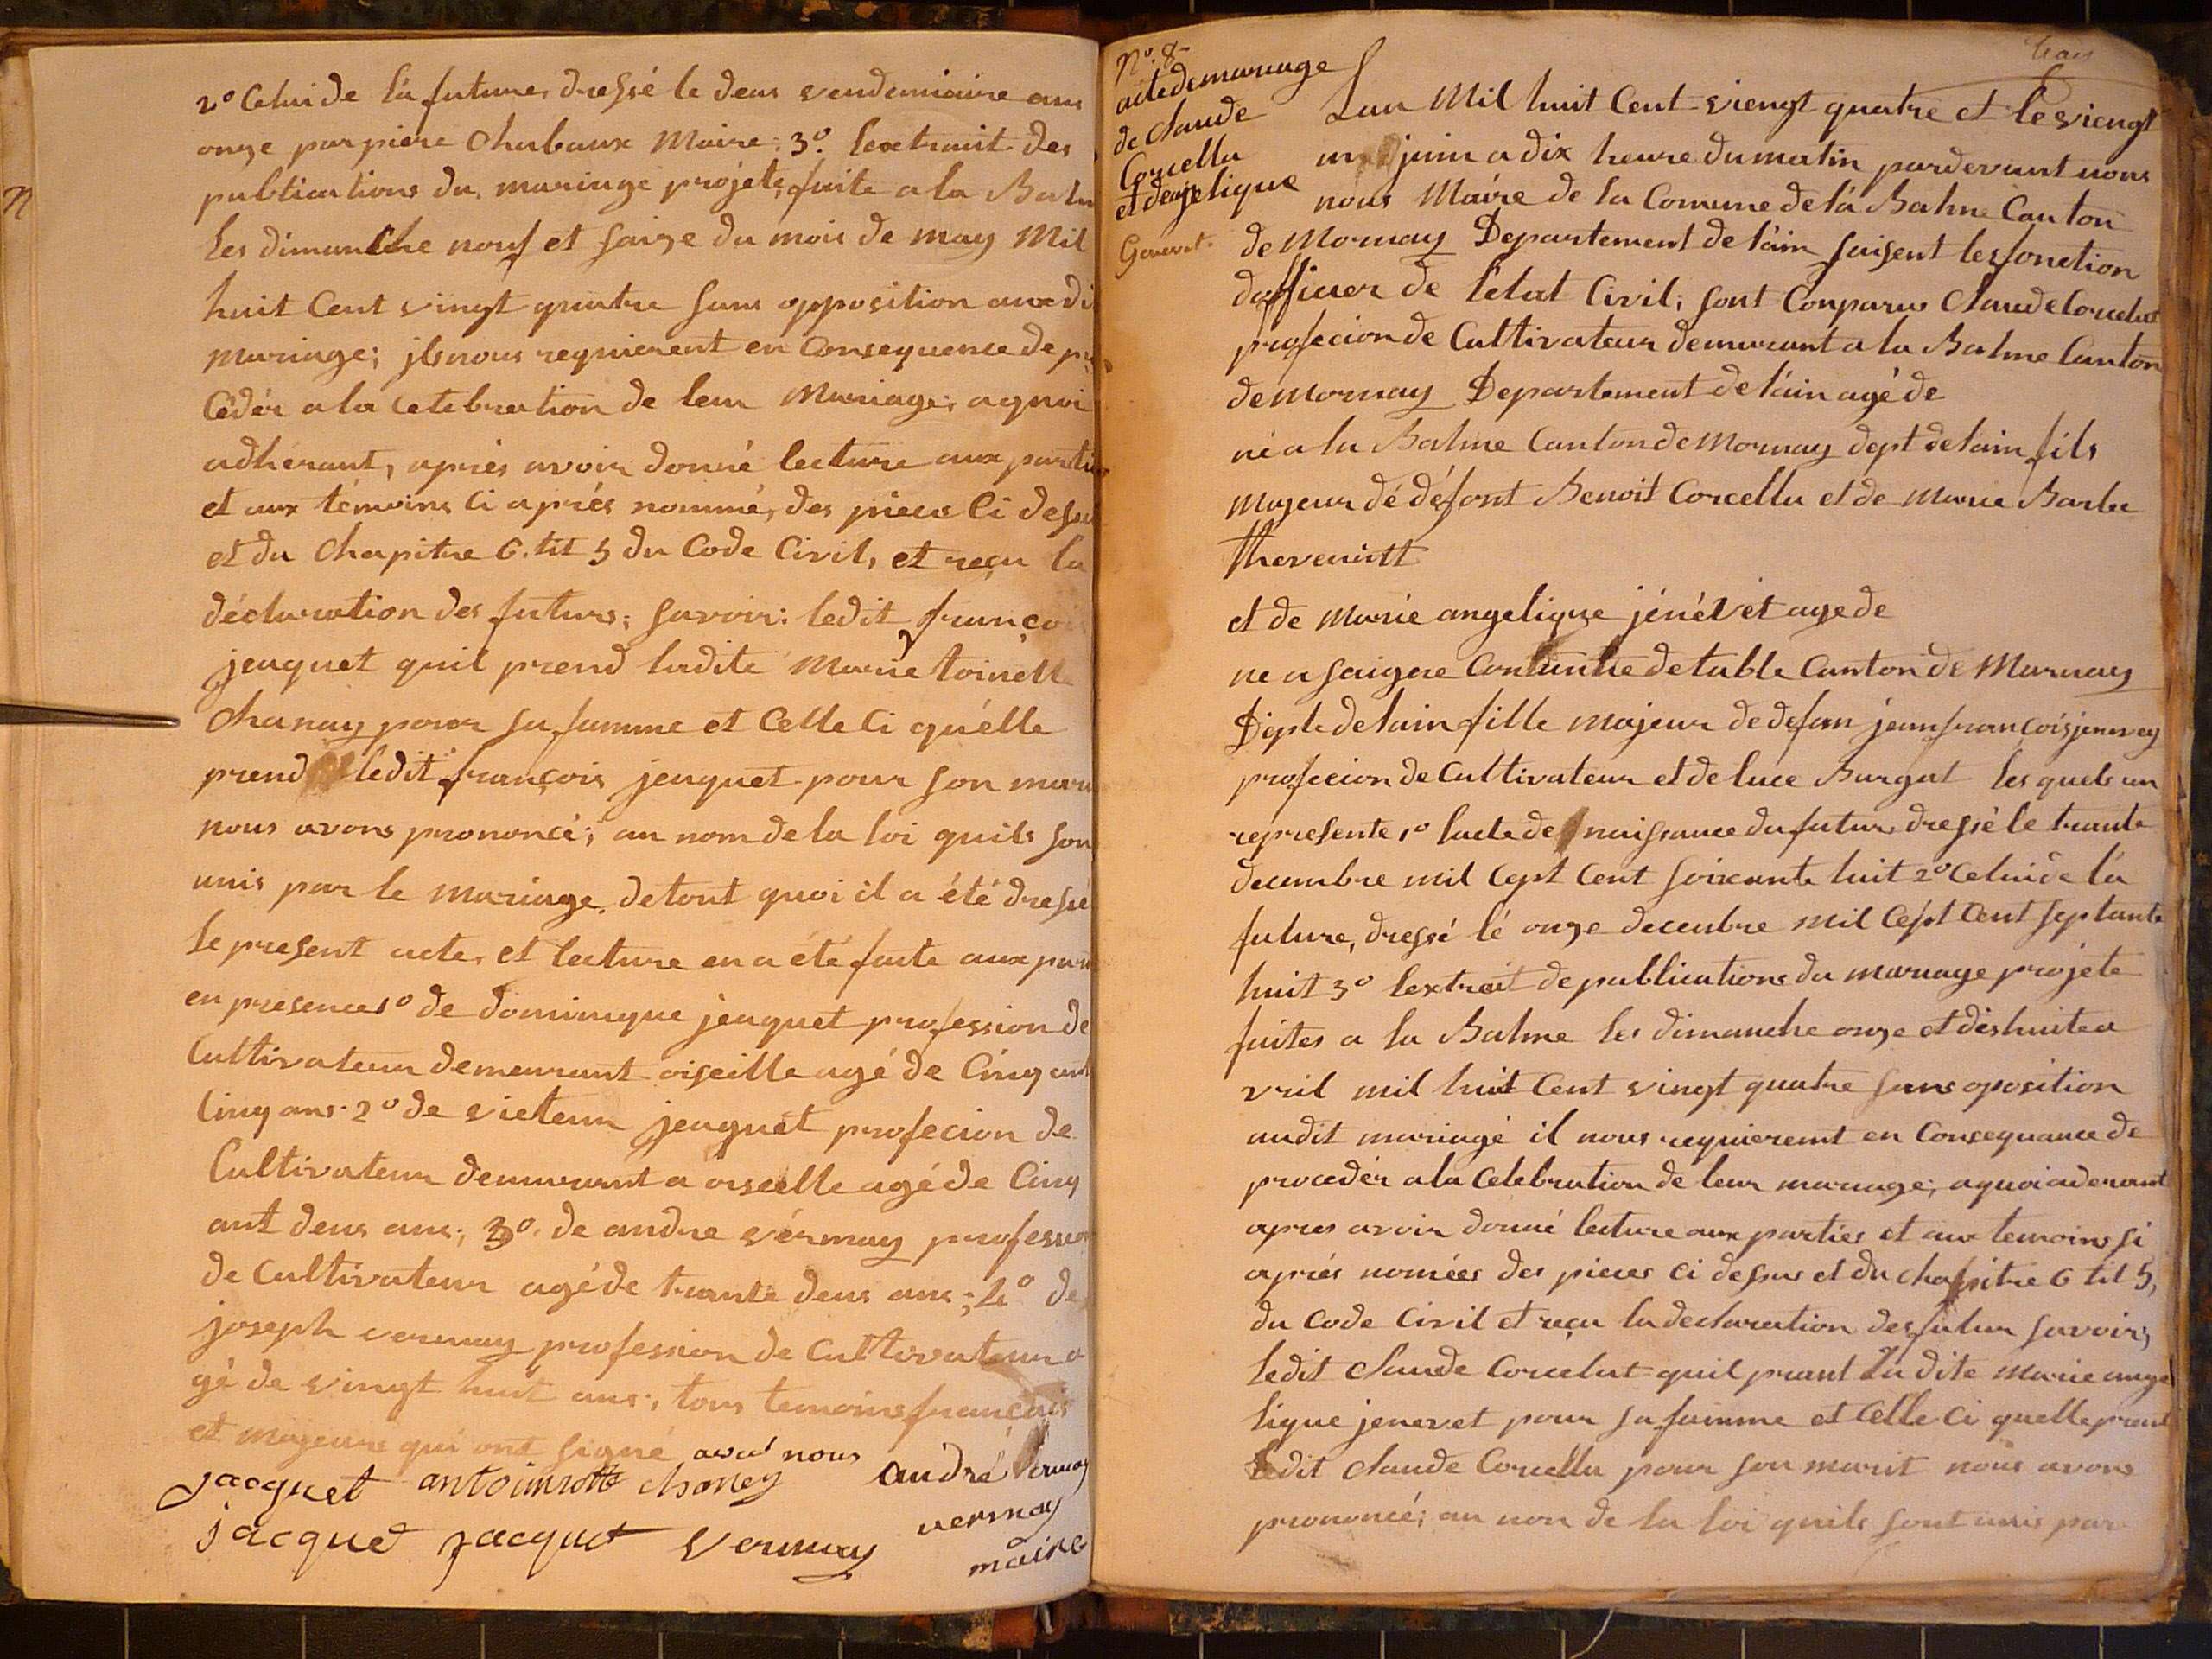 2º Celui de la future, dressé le deus vendemiaire ans
onze par piere Chabaux Maire; 3º. lextrait des
publications du mariage projeté, faite a la Balm
les dimanche nouf et saize du mois de may Mil
huit Cent vingt quatre sans opposition aux di
mariage; ils nous requierent en Consequence de pr
Cédér a la Celebration de leur Mariage; a quoi
adhérant, aprés avoir donné lecture aux partie
et aux témoins Ci aprés nommé, des piece Ci dessu
et du Chapitre 6. tit 5 du Code Civil, et reçu la
déclaration des futurs; savoir: ledit françois
jeuquet quil prend ladite Marie toinette
Chanay pour sa famme et Celle Ci qu'elle
prend ledit françois jeuquet pour son mari
nous avons prononcé; au nom de la loi quils son
unis par le Mariage. de tout quoi il a été dressé
le present acte, et lecture en a été faite aux part
en presence 1º de dominique jeuquet profession de
Cultivateur demeurant oiseille agé de Cinq ant
Cinq ans. 2º de victeur jeuquet profecion de
Cultivateur demeurant a oiselle agé de Cinq
ant deus ans; 3º. de andre vérnay profession
de Cultivateur agé de trante deus ans; 4º de
joseph vernay profession de Cultivateur a
gé de vingt huit ans; tous temoins français
et majeurs qui ont signé avec nous
Jacquet antoinette chaney andré vernay
jacque Jacquet Vernay vernay
maire
Nº. 8
acte de mariage
de Claude
Corcella
et de angelique
Genevet.
Lan Mil huit Cent viengt quatre et le viengt
un juin a dix heure du matin pardevant nous
nous Maire de la Comune de la Balme Canton
de Mornay Departement de l'ain faisent les fonction
dofficier de l'état Civil, sont Conparus Claude Corcelut
profecion de Cultivateur demeurant a la Balme Canton
de Mornay Departement de l'ain agé de
né a la Balme Canton de Mornay dept de lain fils
majeur dé défont Benoit Corcella et de Marie Barbe
thevenitt
et de Marie angelique jénévet age de
ne a Canton de Mornay
Dépte de lain fille majeur de defon jean françois jenevey
profecion de Cultivateur et de luce Burgat les quels un
represente 1º lacte de naissance du futur, dressé le trante
decembre mil Cept Cent soixante huit 2º Celui de la
future, dressé lé onze decembre mil Cépt Cent septante
huit 3º lextrait de publications du mariage projete
faites a la Balme les dimanche onze et dishuit a
vril mil huit Cent vingt quatre sans oposition
audit mariagé il nous requierent en Consequance de
procedér a la Celebration de leur mariage; a quoi aderant
apres avoir donné lecture aux parties et aux temoins si
aprés nomées des pieces Ci dessus et du chapitre 6 tit 5,
du Code Civil et reçu la declaration des futur savoir;
ledit Claude Corcelut quil prant la dite Marie ange
lique jenevet pour sa famme et Celle Ci quelle prant
Ledit Claude Corcella pour son marit nous avons
prononcé; au non de la loi quils sont unis par